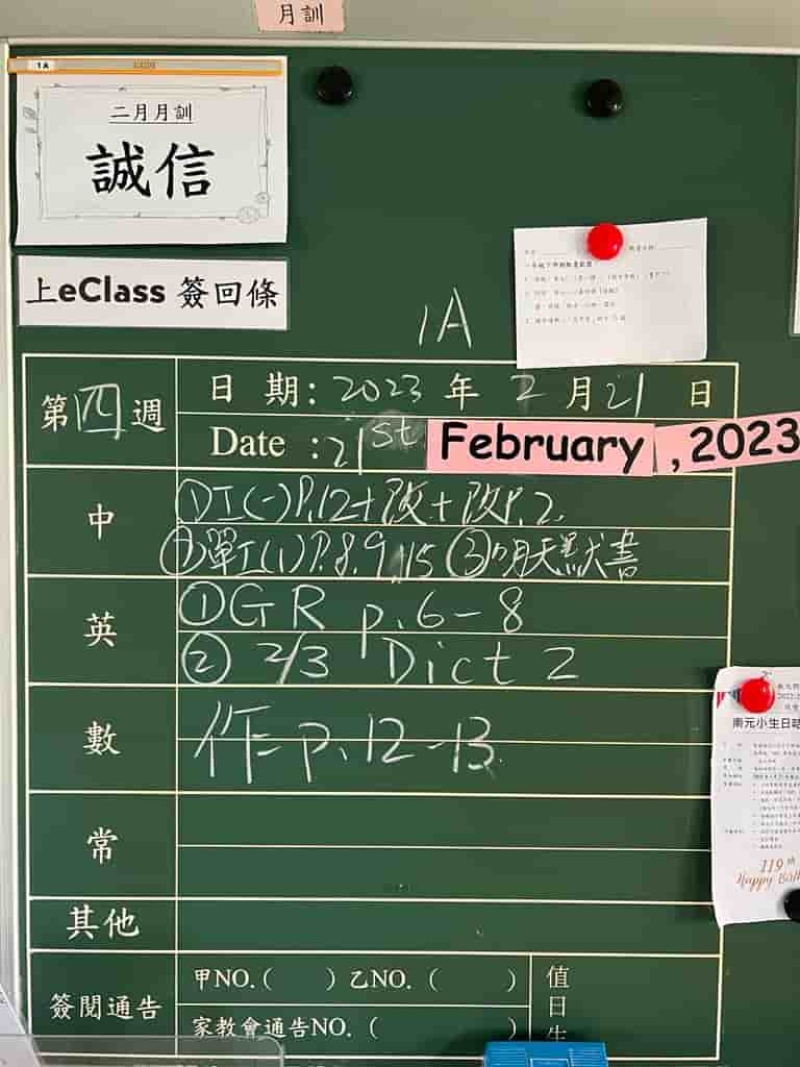 月訓
1A
二月月訓
誠信
上eClass 簽回條
1A
第四週
日 期: 2023 年 2 月 21 日
Date : 21st February ,2023
中
①DI(一)P.12+改+改P.2.
②單工(1)P.8,9,15 ③明天默書
英
①GR p.6-8
② 2/3 Dict 2
數
作 = p.12-13
常
其他
簽閱通告
甲NO.( ) 乙NO.( )
家教會通告NO.( )
值日生
南元小生日
119th
Happy Birth